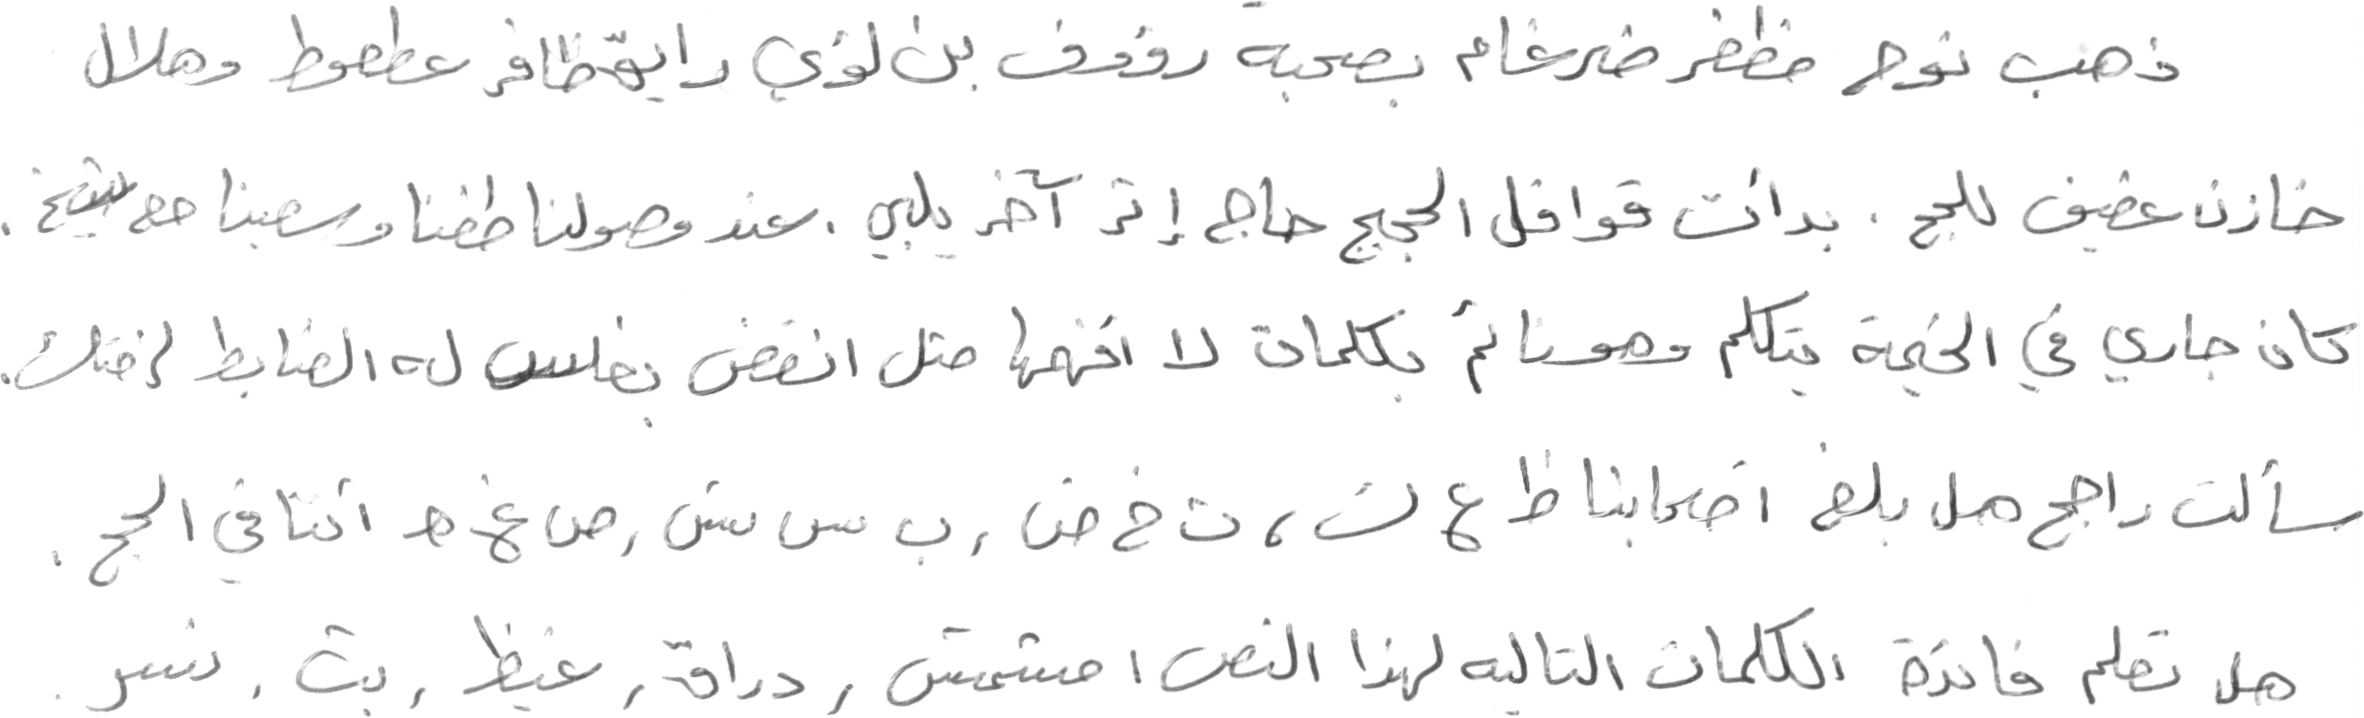 ذهب نوح مظفر ضرغام بصحبة رؤوف بن لؤي رايق ظافر عطعوط وهلال
خازن عفيف للحج . بدأت قوافل الحجيج حاج إثر آخر يلبي . عند وصولنا طفنا وسعينا مع شيخ .
كان جاري في الخيمة يتكلم وهو نائم بكلمات لا أفهمها مثل انقض بغلس له الضابط
سألت راجح هل بلغ أصحابنا ظ ع ث ، ت خ ض , ب س ش , ص غ ه أننا في الحج .
هل تعلم فائدة الكلمات التاليه لهذا النص ا مشمش , دراق , غيظ , بث , نسر .